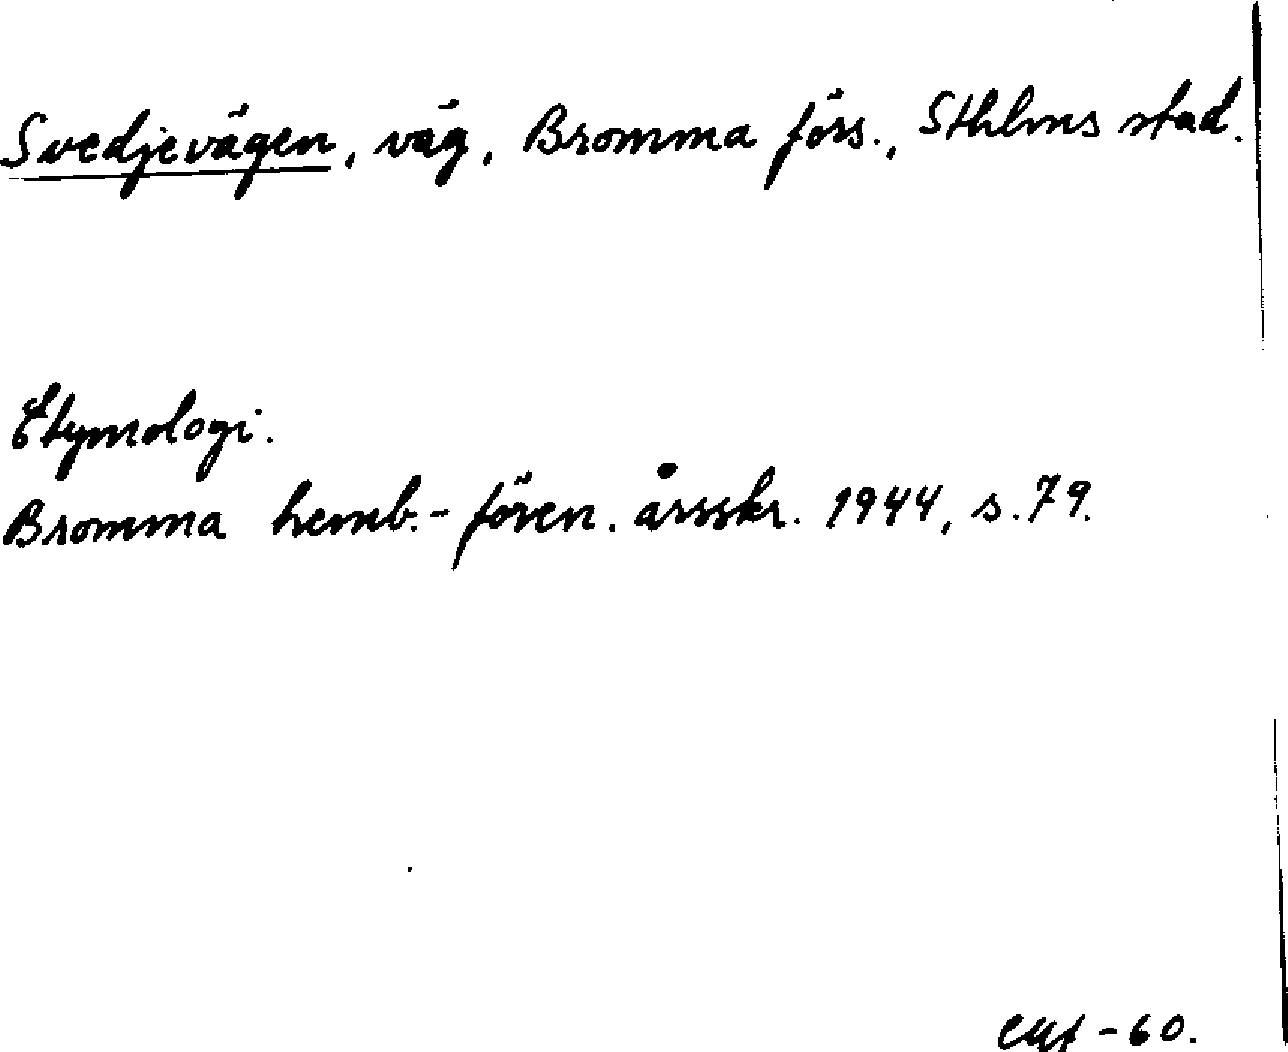 Svedjevägen, väg, Bromma förs., Sthlms stad.
Etymologi.
Bromma hemb.-fören. årsskr. 1944, s. 79.
-60.